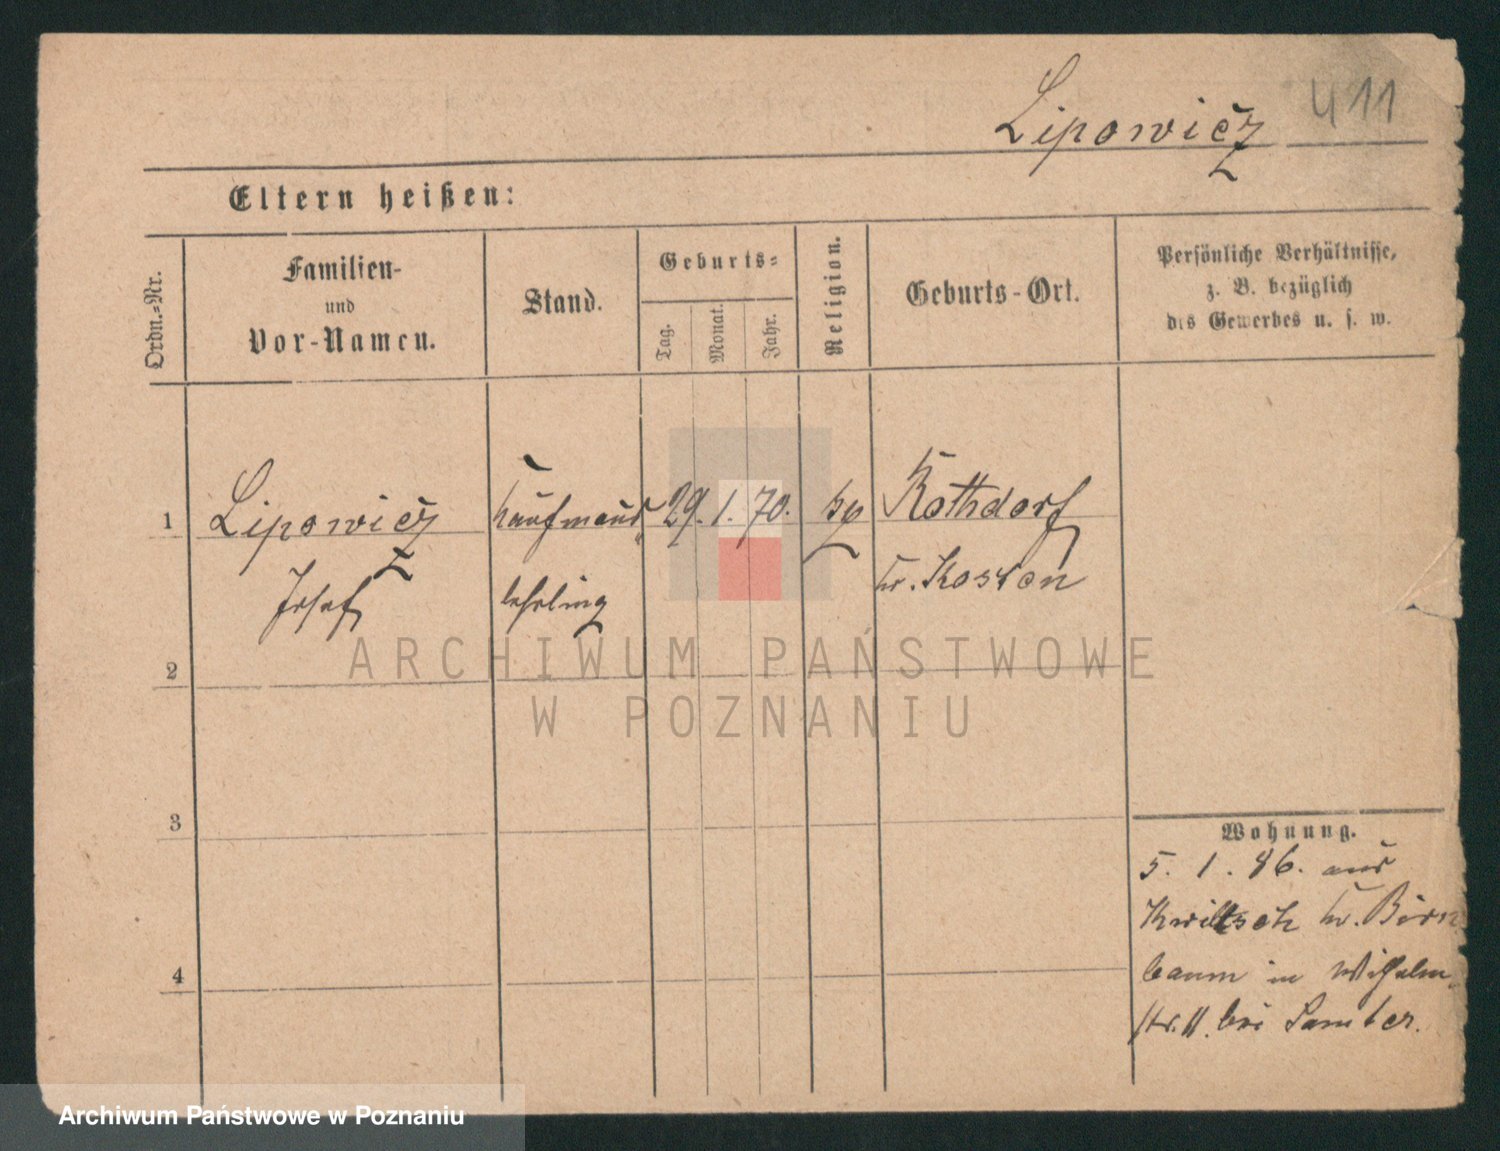 Lipowicz 411
Eltern heißen:
Ordn.-Nr.
Familien-
und
Vor-Namen.
Stand.
Geburts-
Tag.
Monat.
Jahr.
Religion.
Geburts-Ort.
Persönliche Verhältnisse,
z. B. bezüglich
des Gewerbes u. s. w.
1 Lipowicz Kaufmanns 29. 1. 70. Rothdorf
Josef lehrling Kr. Kosten
2
3
4
Wohnung.
5. 1. 86. aus
Kwiltsch Kr. Birn
baum in Wilhelm
str. 11. bei Samter.
ARCHIWUM PAŃSTWOWE
W POZNANIU
Archiwum Państwowe w Poznaniu